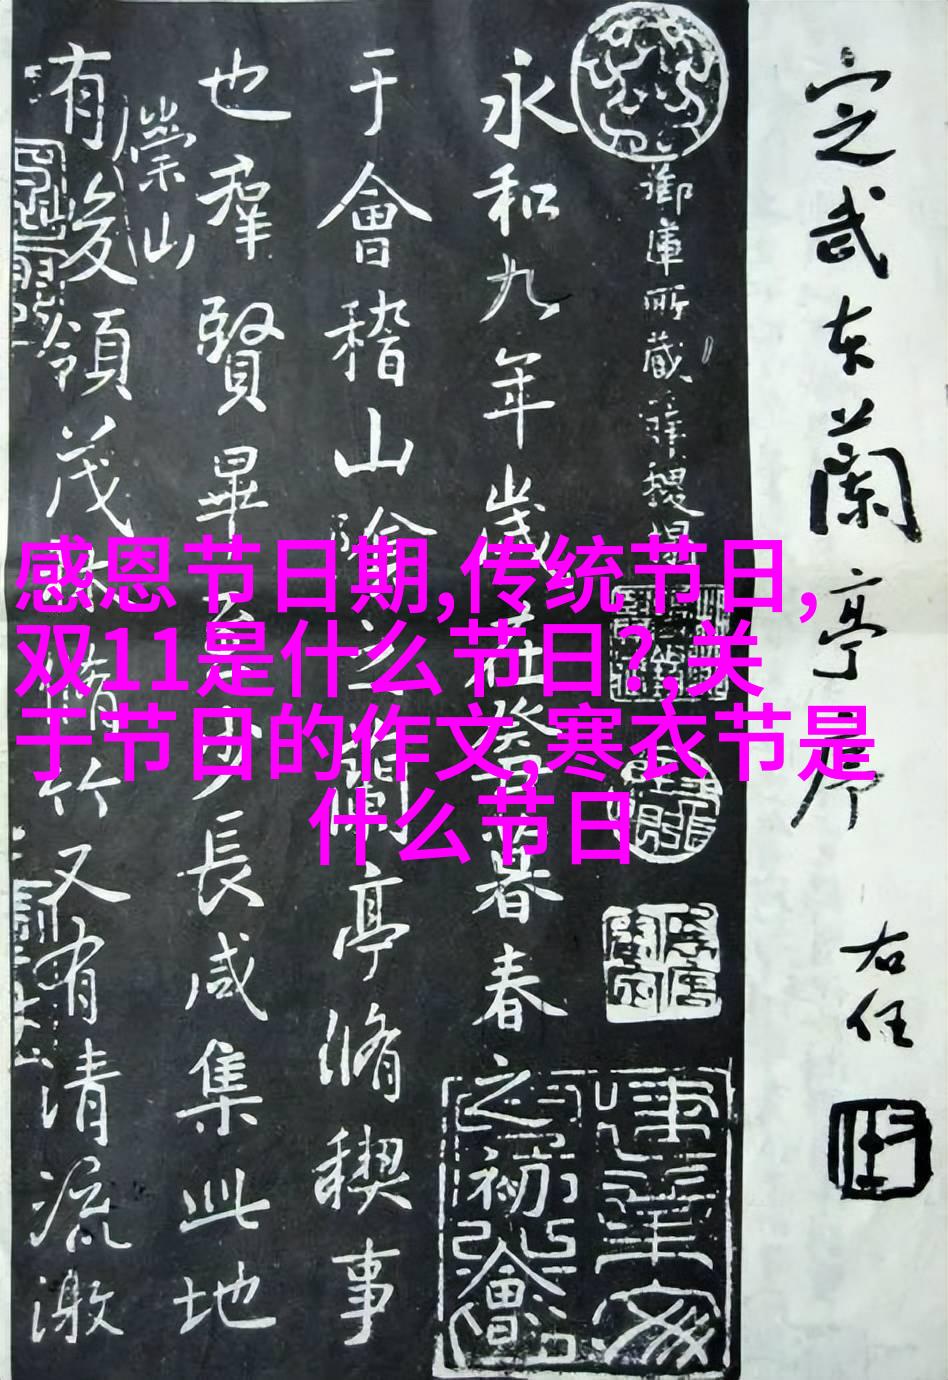 定武本蘭亭序
右任
御府所藏
永和九年歲在癸丑暮春之初會
于會稽山陰之蘭亭脩稧事
也羣賢畢至少長咸集此地
崇山
有峻領茂林脩竹又有清流激
感恩节日期,传统节日,
双11是什么节日?,关
于节日的作文,寒衣节是
什么节日